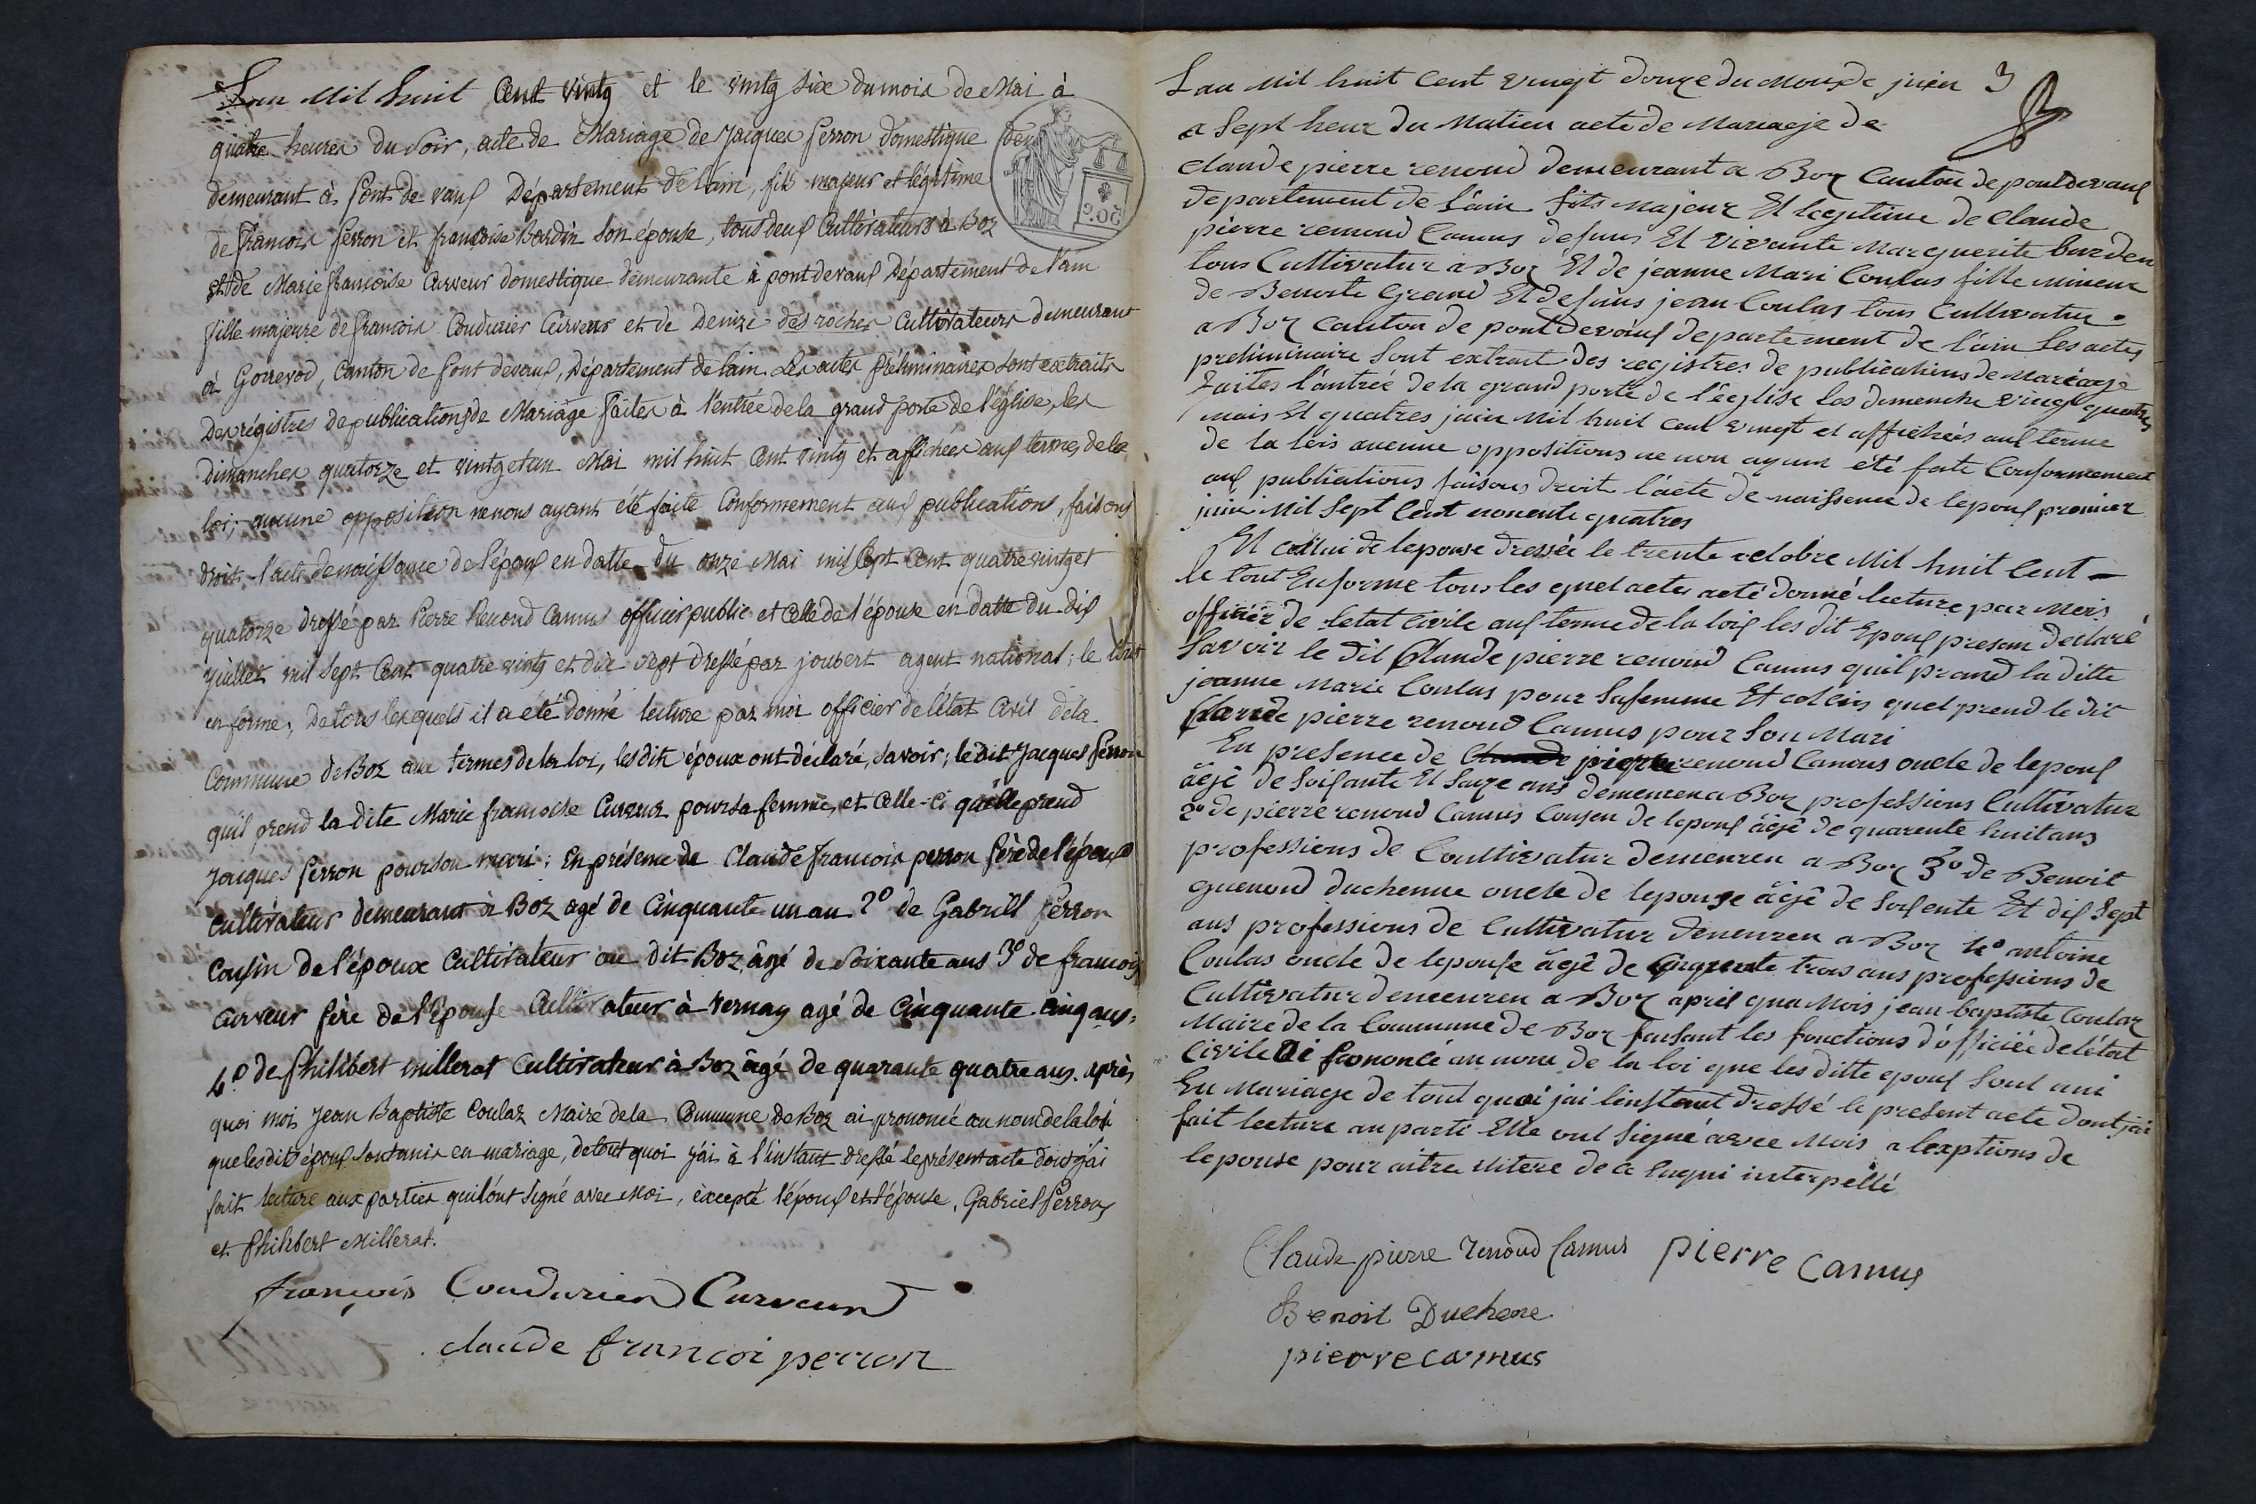 L'an Mil huit Cent vintg et le vintg six du mois de Mai à
quatre heures du Soir, acte de Mariage de Jacques ferron domestique dem
demeurant à Pont de vaux Département de l'ain, fils majeur et légitime
de francois ferron et francoise Bordin son épouse, tous deux Cultivateurs à Boz
et de Marie francoise Curveur domestique demeurante à pontdevaux Département de l'ain
fille majeure de francois Coudurier Curveur et de Denize des roches Cultivateurs demeurant
à Gorrevod, Canton de Pont devaux, Département de lain. Les actes Préliminaires sont extraits
Des régistres de publications de Mariage faites à l'entrée de la grand porte de l'église, les
dimanches quatorze et vintg et un Mai mil huit Cent vintg et affichées aux termes de la
loi; aucune opposition ne nous ayant été faite Conformement aux publications, faisons
droit, l'acte de naissance de l'époux en datte du onze Mai mil Sept Cent quatre vintg et
quatorze dressé par Pierre Renoud Camus officier public et celle de l'épouse en datte du dix
juillet mil Sept Cent quatre vintg et dix sept dressé par joubert agent national; le tout
en forme, de tous lesquels il a été donné lecture par moi officier de l'état Civil dela
Commune de Boz aux termes de la loi, les dits époux ont déclaré, savoir; le dit Jacques ferron
qu'il prend la dite Marie francoise Curveur pour sa femme, et Celle-Ci qu'elle prend
Jacques ferron pour son mari; En présence de Claude francois perron Père de l'époux
Cultivateur demeurant à Boz agé de Cinquante un an 2º de Gabriel ferron
Cousin de l'époux Cultivateur au dit Boz âgé de Soixante ans 3º de francois
Curveur père de l'épouse Cultivateur à vernay agé de Cinquante Cinq ans,
4º de Philibert millerat Cultivateur à Boz âgé de quarante quatre ans. après
quoi moi Jean Baptiste Coulas Maire dela Commune de Boz ai prononcé au nom de la loi
que les dits époux sont unis en mariage, de tout quoi j'ai à l'instant dressé le présent acte dont j'ai
fait lecture aux parties qui l'ont signé avec Moi, excepté l'époux et l'épouse, Gabriel ferron
et Philibert Millerat.
françois Coudurier Curveur
claude francoi perron
Lan Mil huit Cent vingt douze du Mois de juin 3
a Sept heur du Matin acte de Mariage de
claude pierre renoud demeurant a Boz Canton de pontdevaux
departement de l'ain fils majeur Et legitime de Claude
pierre renoud Camus defuns Et vivante Marguerite burden
tous Cultivatur à Boz Et de jeanne Mari Coulas fille mineur
de Benoite Grand Et defuns jean Coulas tous Cultivatur
a Boz canton de pont devaux departement de l'ain les actes
preliminaire Sont extrait des registres de publications de Mariage
faites l'antrée de la grand porte de l'église les demenche vingt quatres
mais Et quatres juin Mil huit cent vingt et affichées aux terme
de la lois aucune oppositions ne nou ayant été faite Conformement
aux publications faisons droit l'acte de naissence de lepoux premier
juin Mil Sept Cent nonente quatres
Et cellui de lepouse dressée le trente octobre Mil huit Cent
le tout En forme tous les quel actes acté donné lecture par Mois
officier de letat Civile aux terme de la lois les dit Epoux presan declaré
Savoir le dit Claude pierre renoud Camus quil prand la ditte
jeanne Marie Coulas pour Sa femme Et colleis quel prend le dit
Claude pierre renoud Camus pour Son Mari
En presence de pierre renoud Camus oncle de lepoux
âgê de Soisante Et Saize ans demeuren a Boz professions Cultivatur
2º de pierre renoud Camus Cousen de lepoux âgê de quarente huit ans
professions de Coultivatur demeuren a Boz 3º de Benoit
guenoud duchenne oncle de lepouse âgê de Soisente Et dix Sept
ans professions de Cultivatur demeuren a Boz 4º antoine
Coulas oncle de lepouse âgê de Cinquente trois ans professions de
Cultivatur demeuren a Boz april qua Mois jean baptiste Coulas
Maire de la Commune de Boz faisant les fonctions d'officiée de létat
Civile Ai prononcé au nom de la loi que les ditte epoux Sont uni
En Mariage de tout quoi jai linstant dressé le present acte dont jai
fait lecture au parti Elle ont Signé avec Mois a lexptions de
lepouse pour aitre illitere de ce enqui interpellé
Claude pierre renoud Camus pierre camus
Benoit Duchene
pierre camus